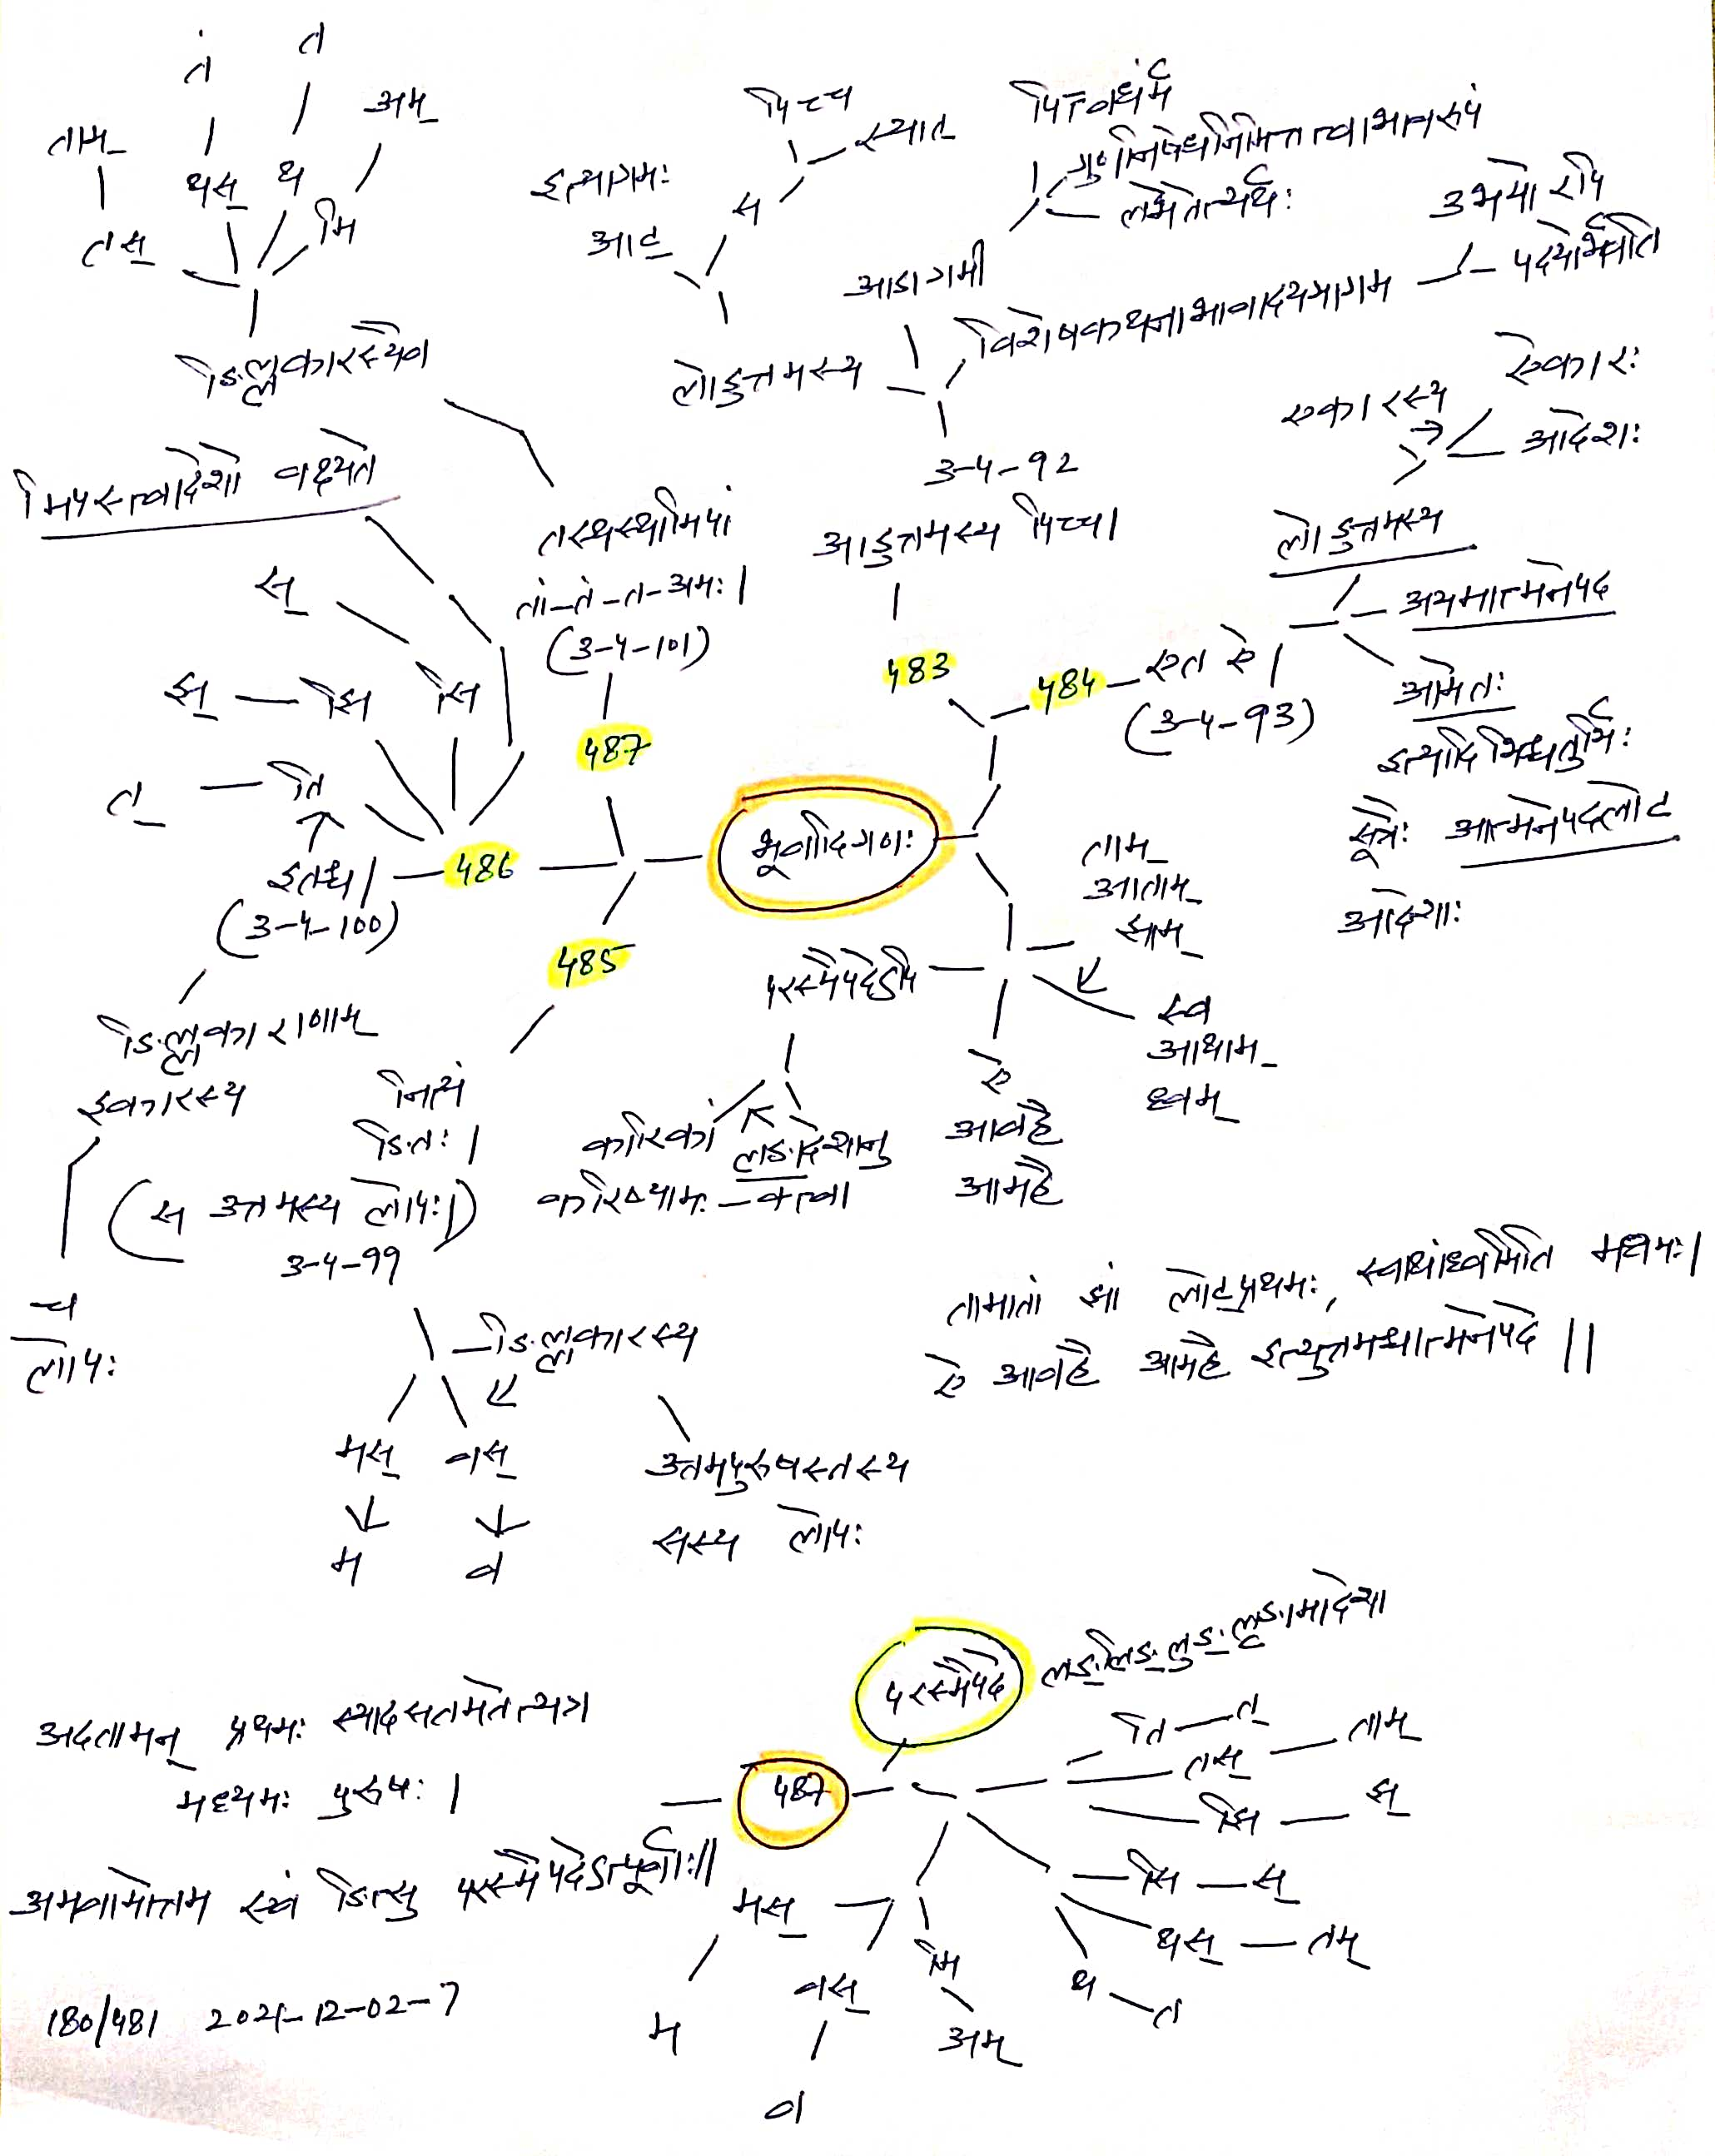 तं
त
ताम्
थस्
थ
अम्
तस्
मि
ङिल्लकारस्यैव
पिच्च
स्यात्
स
इत्यागमः
आट्
लोडुत्तमस्य
पित्त्वार्थं
लभेतेत्यर्थः
आडागमो
उभयोरपि
पदयोर्भवति
3-4-92
आडुत्तमस्य पिच्च।
483
एकारस्य
ऐकारः
आदेशः
लोडुत्तमस्य
484
एत ऐ।
(3-4-93)
अयमात्मनेपदे
आमेतः
इत्यादि
सूत्रैः आत्मनेपदलोट्
आदेशाः
मिपस्त्वादेशो वक्ष्यते
तस्थस्थमिपां
तां-तं-त-अमः।
(3-4-101)
487
स्
सि
झ् — झि
त् — ति
इतश्च।
(3-4-100)
486
भूवादिगणः
485
ङिल्लकाराणाम्
इकारस्य
च
लोपः
नित्यं
ङितः।
(स उत्तमस्य लोपः।)
3-4-99
ङिल्लकारस्य
मस्
वस्
म
व
उत्तमपुरुषस्तस्य
सस्य लोपः
परस्मैपदेऽपि
कारिकां
लङादेशानु
करिष्यामः
ताम्
आताम्
झाम्
स्व
आथाम्
ध्वम्
ऐ
आवहै
आमहै
तामातां झां लोट्प्रथमः, स्वाथांध्वमिति मध्यमः।
ऐ आवहै आमहै इत्युत्तमश्चात्मनेपदे ॥
परस्मैपदे
लङ्लिङ्लुङ्लृङामादेशा
487
ति — त्
तस् — ताम्
झि — झ्
सि — स्
थस् — तम्
थ — त
मि
अम्
वस्
व
मस्
म
अदतामन् प्रथमः स्यादसतमतेत्यत्र
मध्यमः पुरुषः।
180/481 2021-12-02-7